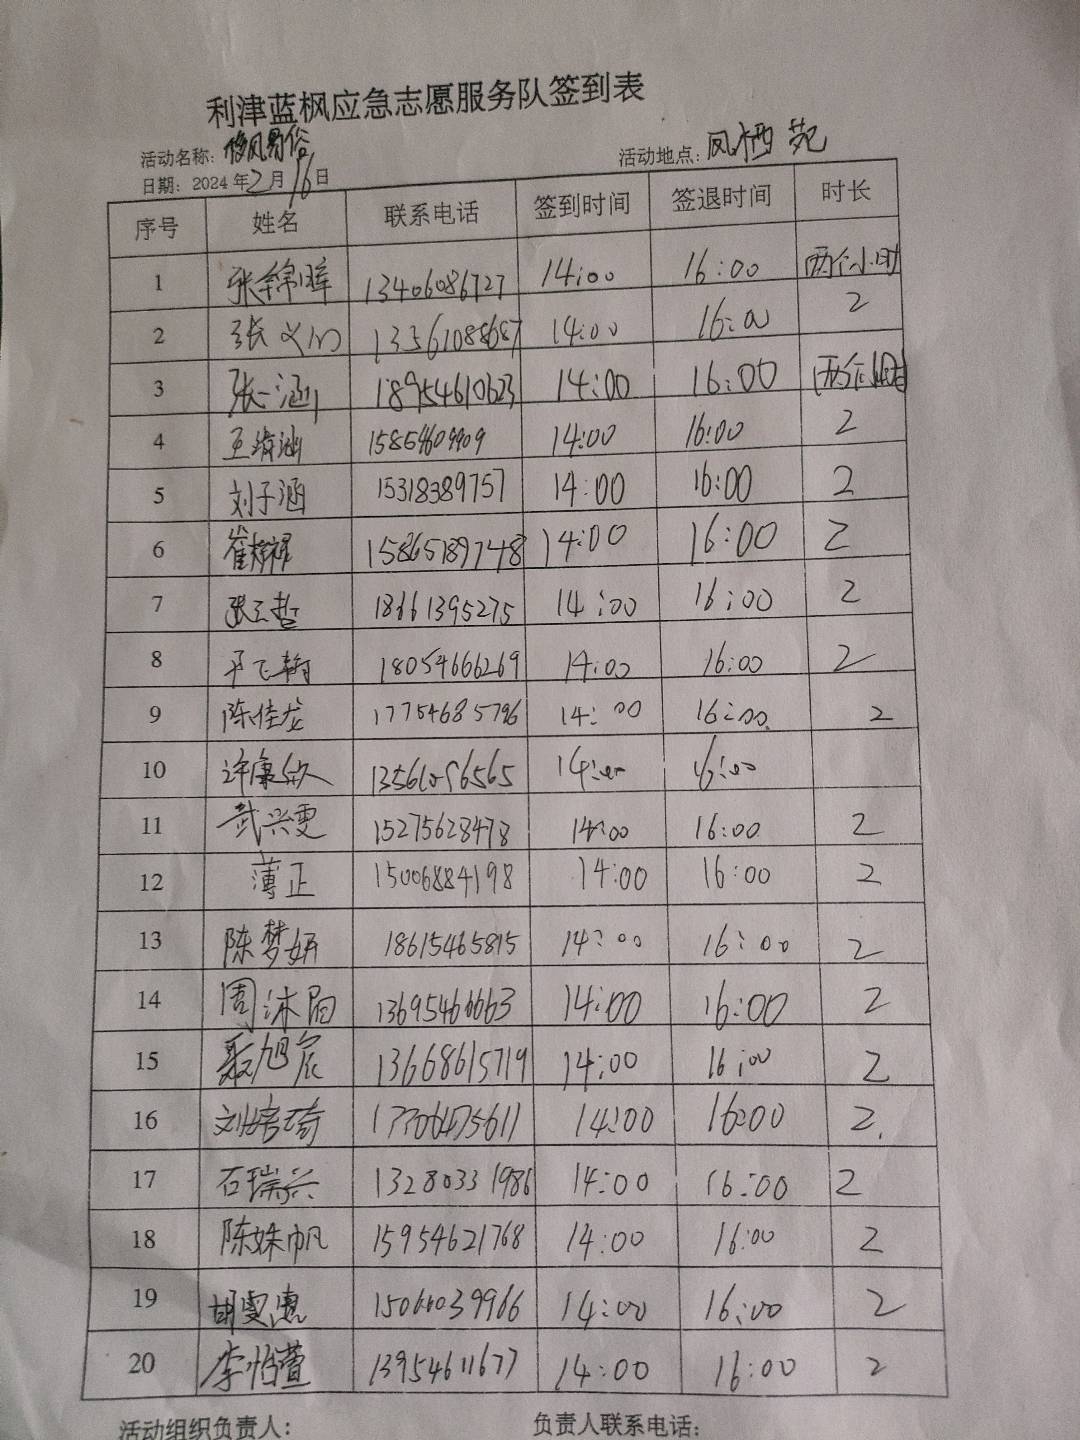 利津蓝枫应急志愿服务队签到表
活动名称：移风易俗 活动地点：凤栖苑
日期：2024年2月16日
序号 姓名 联系电话 签到时间 签退时间 时长
1 张锦晖 13406086727 14:00 16:00 两个小时
2 张 13561088687 14:00 16:00 2
3 张一涵 18954610623 14:00 16:00 两个小时
4 王 15854609909 14:00 16:00 2
5 刘子涵 15318389757 14:00 16:00 2
6 崔 15865189748 14:00 16:00 2
7 张 18661395275 14:00 16:00 2
8 飞翰 18054666269 14:00 16:00 2
9 陈佳龙 17754685796 14:00 16:00 2
10 许康 14:00 16:00
11 武兴雯 15275628478 14:00 16:00 2
12 薄正 15006884198 14:00 16:00 2
13 陈梦妍 18615465815 14:00 16:00 2
14 周沐 13695466663 14:00 16:00 2
15 聂旭宸 13668615719 14:00 16:00 2
16 刘 琦 17706475611 14:00 16:00 2
17 石瑞兴 13280331986 14:00 16:00 2
18 陈姝帆 15954621768 14:00 16:00 2
19 胡雯惠 14:00 16:00 2
20 李怡萱 13954611677 14:00 16:00 2
活动组织负责人： 负责人联系电话：